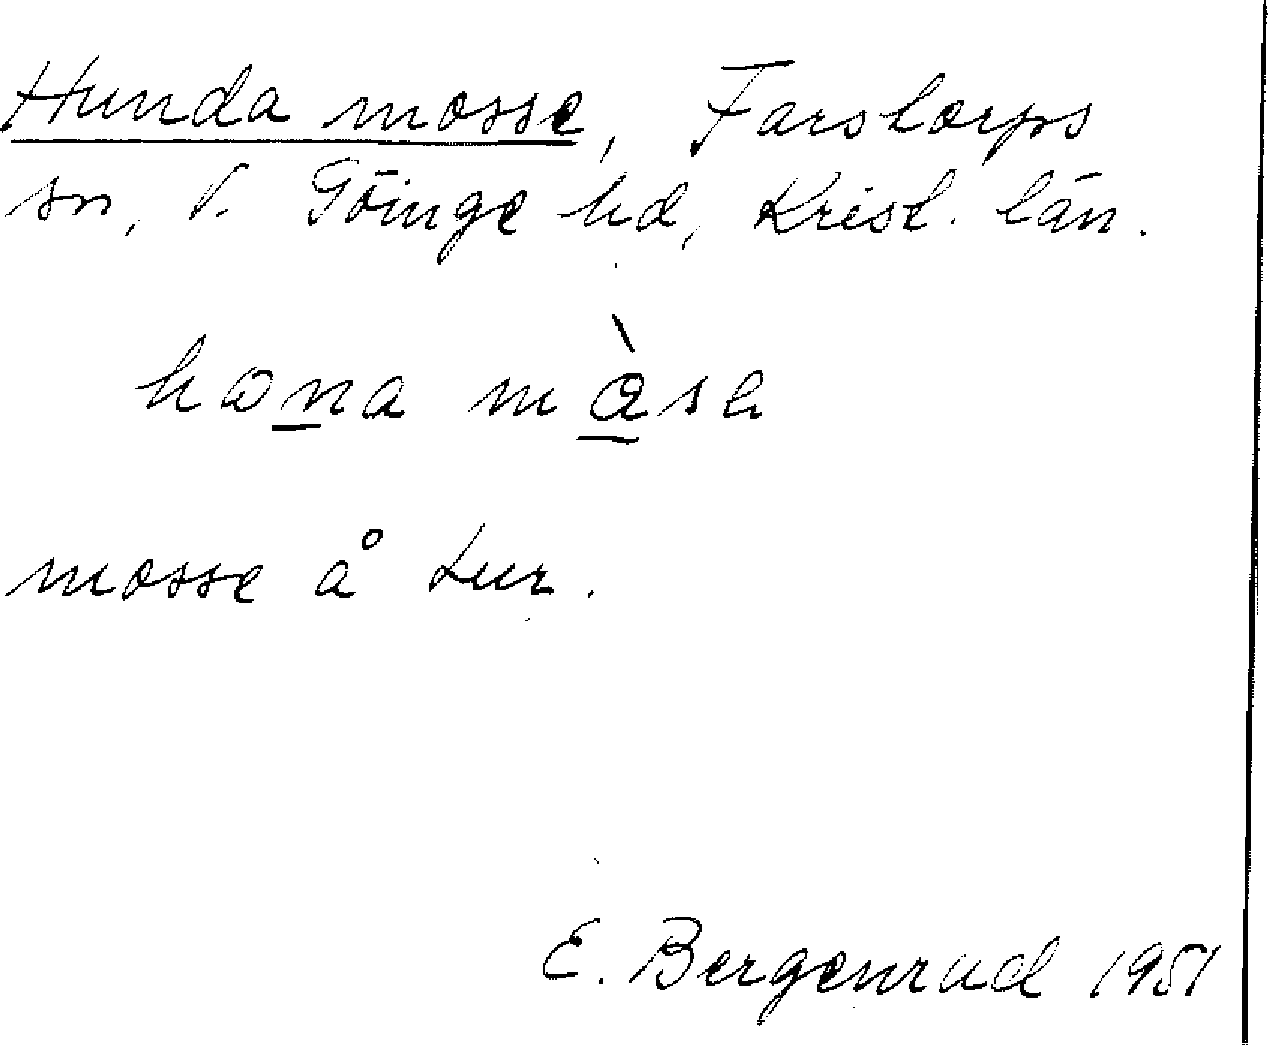 Hunda mosse, Farstorps
sn, V. Göinge hd, Krist. län.
hana màsa
mosse å Lur.
E. Bergenrud 1951